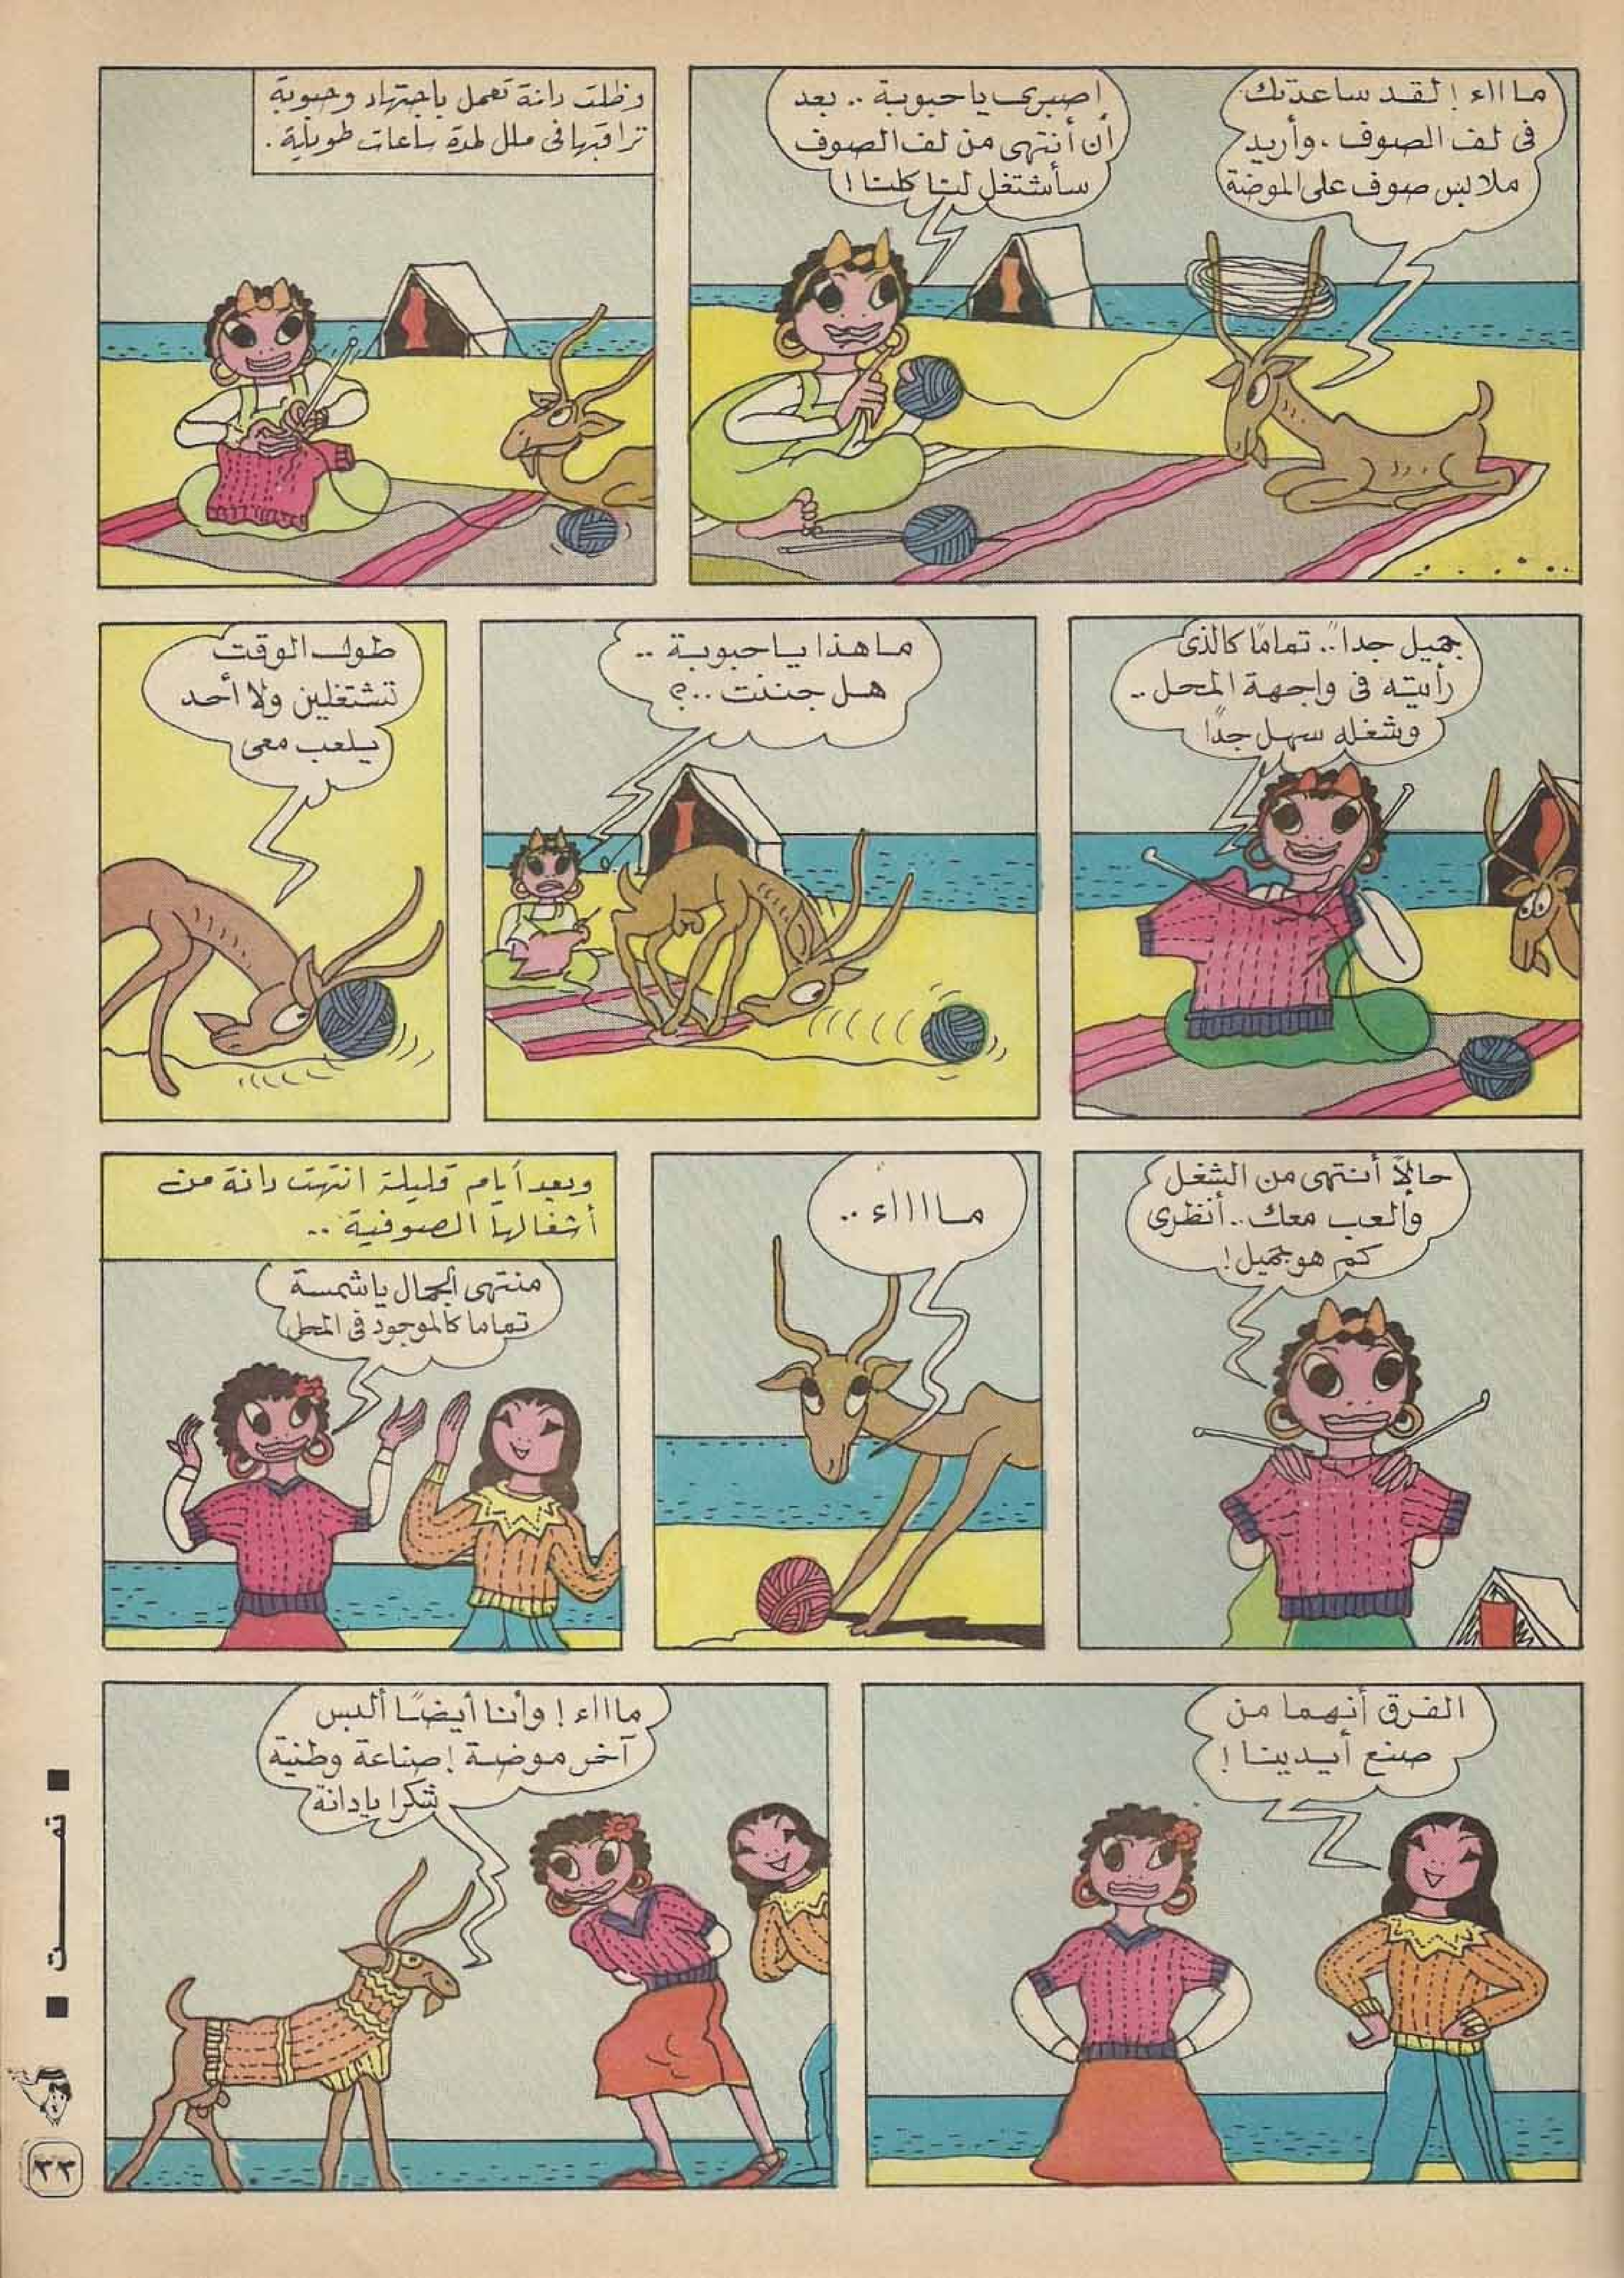 ماااء ! لقد ساعدتك
فى لف الصوف . وأريد
ملابس صوف على الموضة
اصبرى يا حبوبة .. بعد
أن أنتهى من لف الصوف
سأشتغل لنا كلنا !
وظلت دانة تعمل باجتهاد وحبوبة
تراقبها فى ملل لمدة ساعات طويلة .
جميل جداً .. تماماً كالذى
رأيته فى واجهة المحل ..
وشغله سهل جداً
ما هذا يا حبوبة ..
هل جننت ..؟
طول الوقت
تشتغلين ولا أحد
يلعب معى
حالاً أنتهى من الشغل
وألعب معك .. أنظرى
كم هو جميل !
مااااء ..
وبعد أيام قليلة انتهت دانة من
أشغالها الصوفية ..
منتهى الجمال يا شمسة
تماما كالموجود فى المحل
الفرق أنهما من
صنع أيدينا !
ماااء ! وأنا أيضًا ألبس
آخر موضة ! صناعة وطنية
شكرا يا دانة
■ تمــــت ■
٢٣